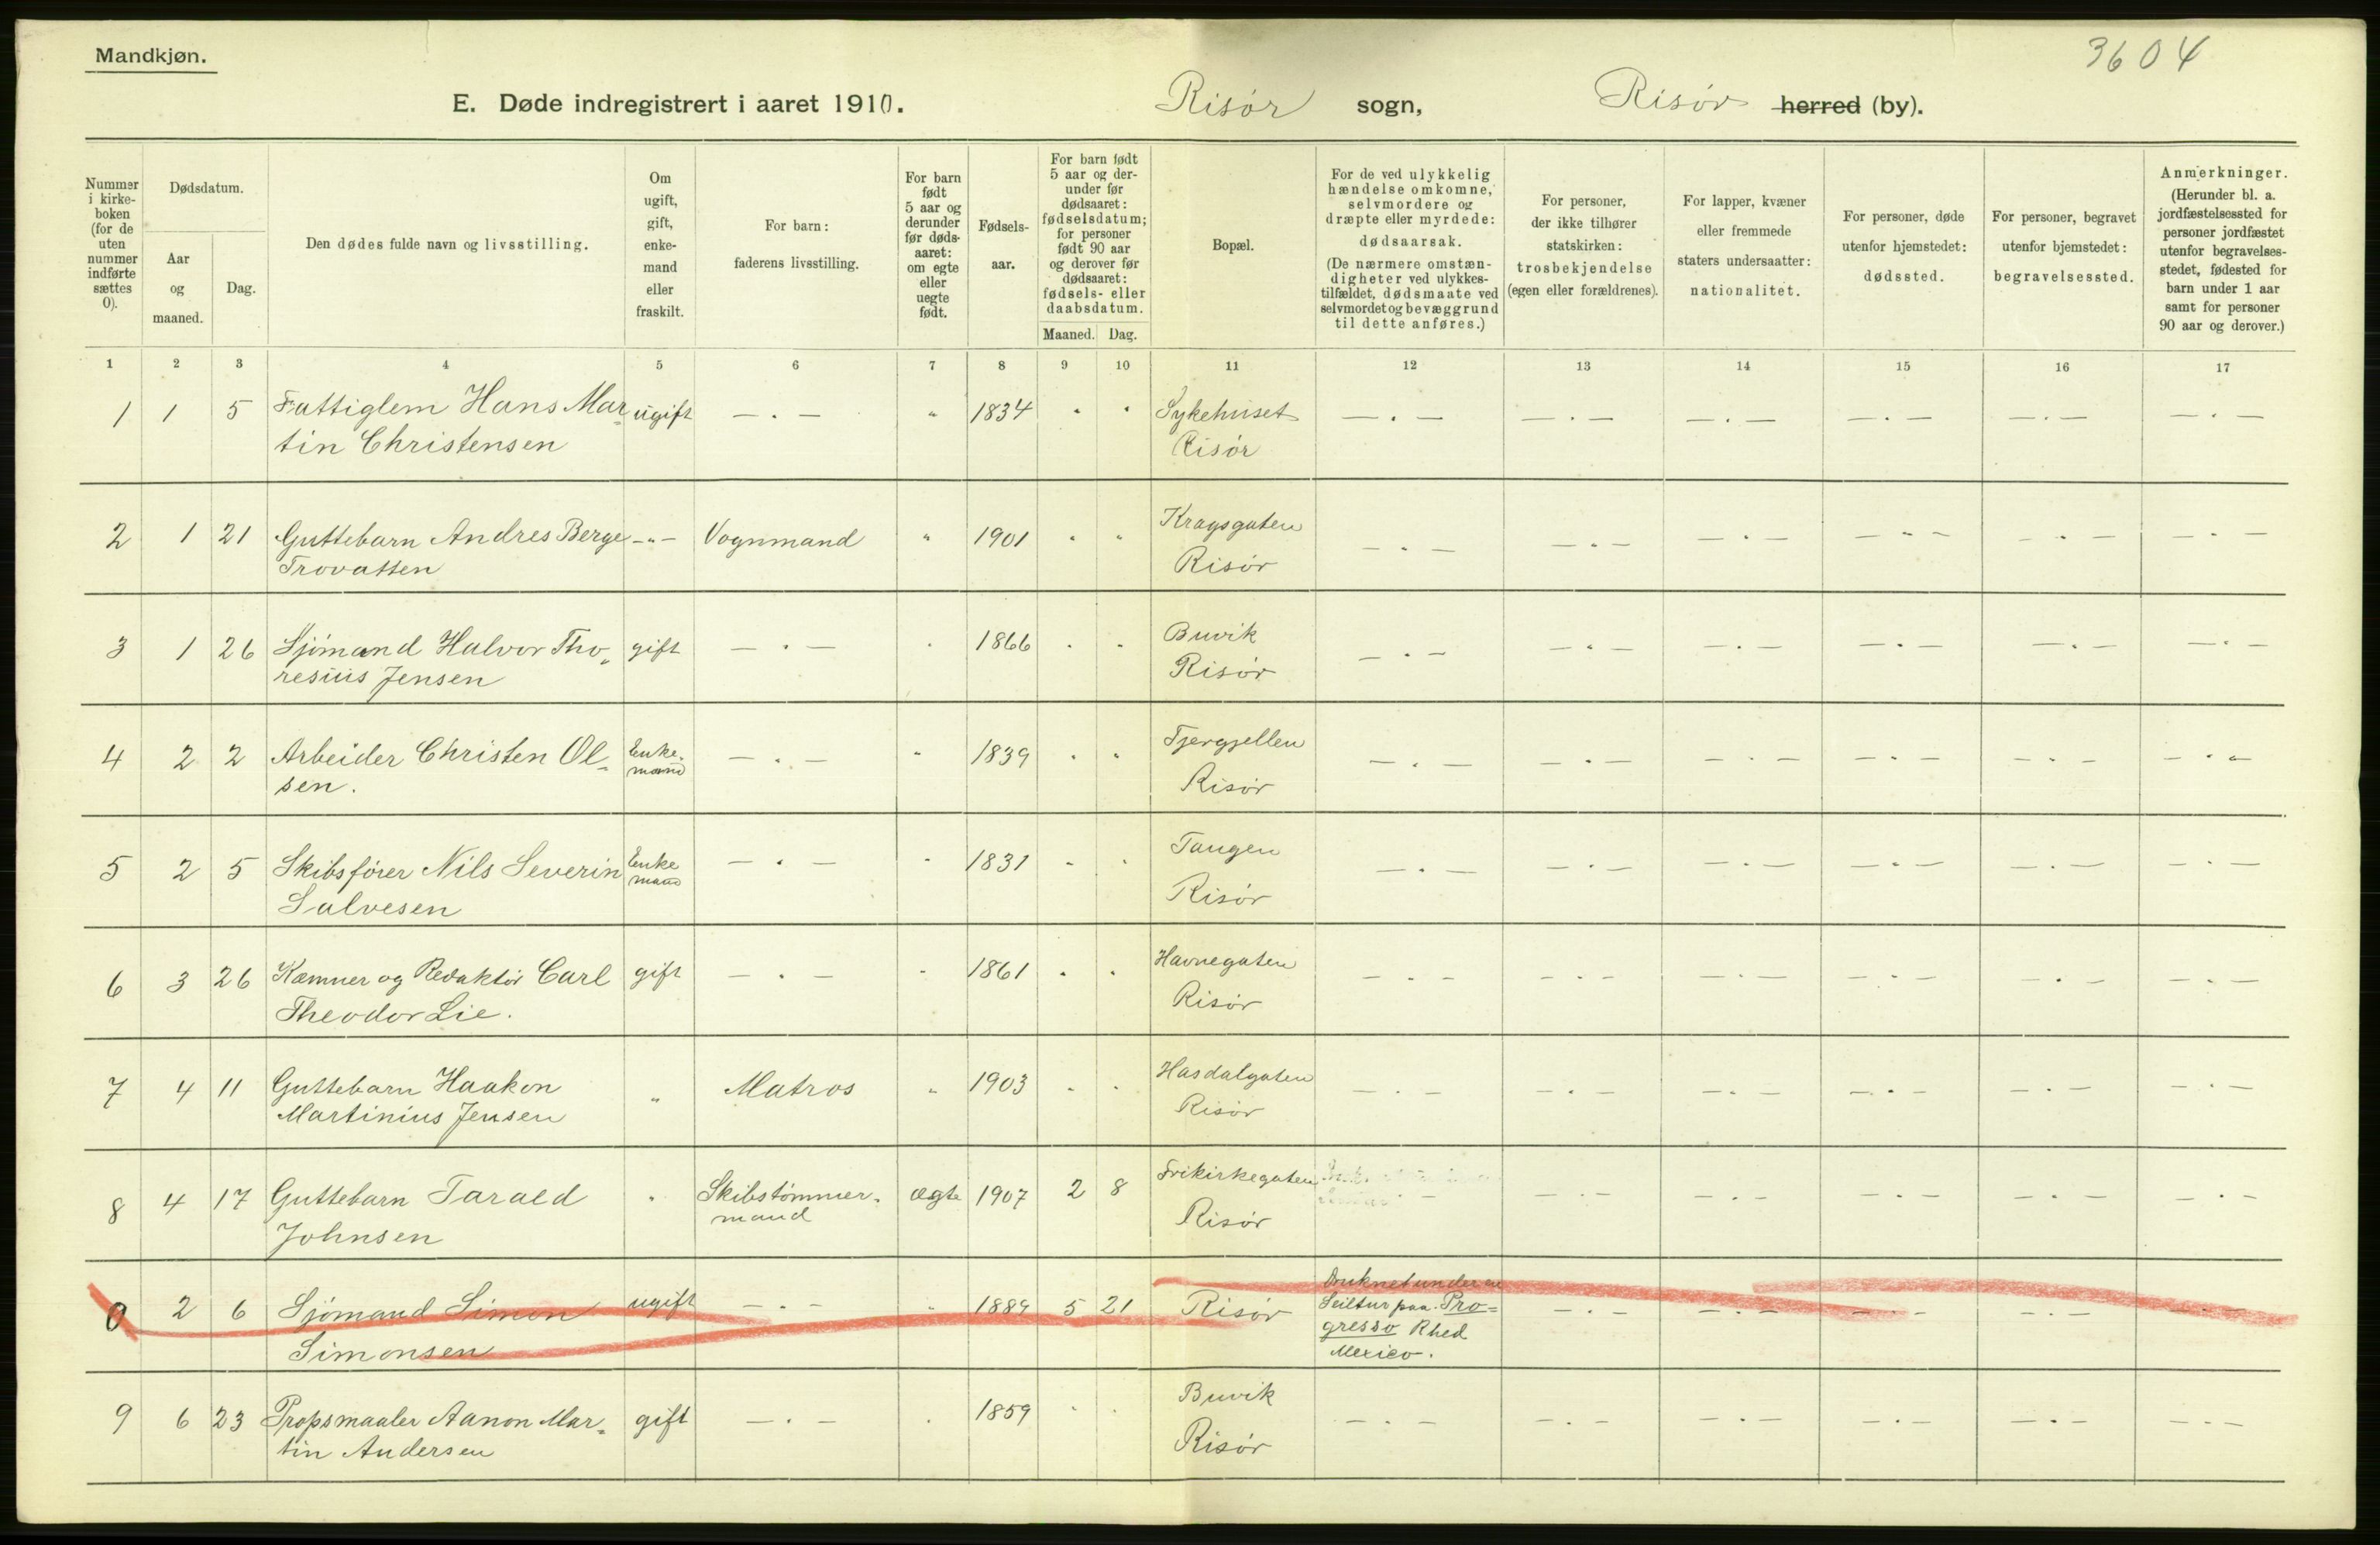 Mandkjøn.
3604
E. Døde indregistrert i aaret 1910. Risør sogn, Risør herred (by).
Nummer i kirkeboken (for de uten nummer indførte sættes 0).
Dødsdatum.
Aar og maaned.
Dag.
Den dødes fulde navn og livsstilling.
Om ugift, gift, enkemand eller fraskilt.
For barn: faderens livsstilling.
For barn født 5 aar og derunder før dødsaaret: om egte eller uegte født.
Fødselsaar.
For barn født 5 aar og derunder før dødsaaret: fødselsdatum; for personer født 90 aar og derover før dødsaaret: fødsels- eller daabsdatum.
Maaned. Dag.
Bopæl.
For de ved ulykkelig hændelse omkomne, selvmordere og dræpte eller myrdede: dødsaarsak. (De nærmere omstændigheter ved ulykkestilfældet, dødsmaate ved selvmordet og bevæggrund til dette anføres.)
For personer, der ikke tilhører statskirken: trosbekjendelse (egen eller forældrenes).
For lapper, kvæner eller fremmede staters undersaatter: nationalitet.
For personer, døde utenfor hjemstedet: dødssted.
For personer, begravet utenfor hjemstedet: begravelsessted.
Anmerkninger. (Herunder bl. a. jordfæstelsessted for personer jordfæstet utenfor begravelsesstedet, fødested for barn under 1 aar samt for personer 90 aar og derover.)
1 2 3 4 5 6 7 8 9 10 11 12 13 14 15 16 17
1 1 5 Fattiglem Hans Mar= ugift — . — " 1834 " " Sykehuset — . — — . — — . — — . — — . — — . —
tin Christensen Risør
2 1 21 Guttebarn Andres Berge —"— Vognmand " 1901 " " Kragsgaten — . — — . — — . — — . — — . — — . —
Trovatten Risør
3 1 26 Sjømand Halvor Tho= gift — . — " 1866 " " Buvik — . — — . — — . — — . — — . — — . —
resius Jensen Risør
4 2 2 Arbeider Christen Ol= Enke= — . — " 1839 " " Tjergjellen — . — — . — — . — — . — — . — — . —
sen. mand Risør
5 2 5 Skibsfører Nils Severin Enke — . — " 1831 " " Tangen — . — — . — — . — — . — — . — — . —
Salvesen mand Risør
6 3 26 Kæmner og Redaktør Carl gift — . — " 1861 " " Havnegaten — . — — . — — . — — . — — . — — . —
Theodor Lie. Risør
7 4 11 Guttebarn Haakon " Matros " 1903 " " Hasdalgaten — . — — . — — . — — . — — . — — . —
Martinius Jensen Risør
8 4 17 Guttebarn Tarald " Skibstømmer= ægte 1907 2 8 Frikirkegaten — . — — . — — . — — . — — . — — . —
Johnsen mand Risør
0 2 6 Sjømand Simon ugift — . — " 1889 5 21 Risør Druknet under en — . — — . — — . — — . — — . —
Simonsen Seiltur paa Pro=
gresso Rhed
Mexico.
9 6 23 Propsmaaler Aanon Mar= gift — . — " 1859 " " Buvik — . — — . — — . — — . — — . — — . —
tin Andersen Risør